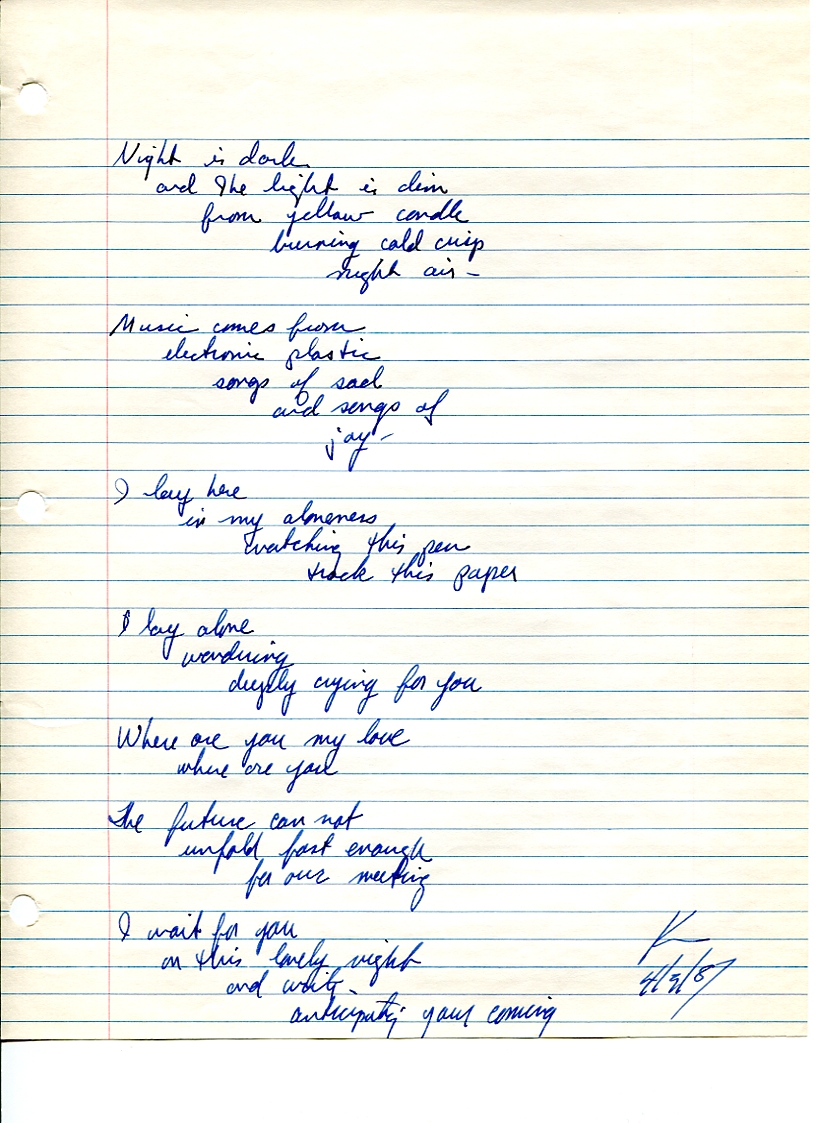 Night is dark
and the light is dim
from yellow candle
burning cold crisp
night air -
Music comes from
electronic plastic
songs of sad
and songs of
joy -
I lay here
in my aloneness
watching this pen
track this paper
I lay alone
wondering
deeply crying for you
Where are you my love
where are you
The future can not
unfold fast enough
for our meeting
I wait for you
on this lovely night
and write -
anticipating your coming
K
4/3/87